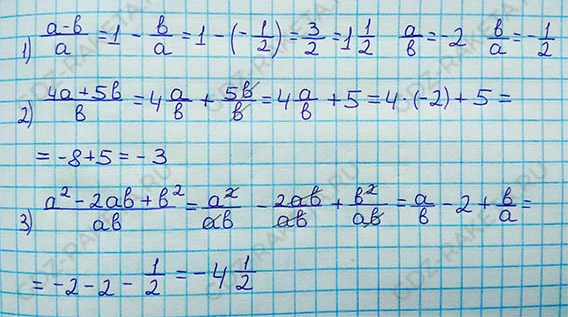 1) (a-b)/a = 1 - b/a = 1 - (-1/2) = 3/2 = 1 1/2    a/b = -2    b/a = -1/2
2) (4a+5b)/b = 4 a/b + 5b/b = 4 a/b + 5 = 4·(-2)+5 =
= -8+5 = -3
3) (a²-2ab+b²)/ab = a²/ab - 2ab/ab + b²/ab = a/b - 2 + b/a =
= -2-2 - 1/2 = -4 1/2
GDZ-RAKETA.RU